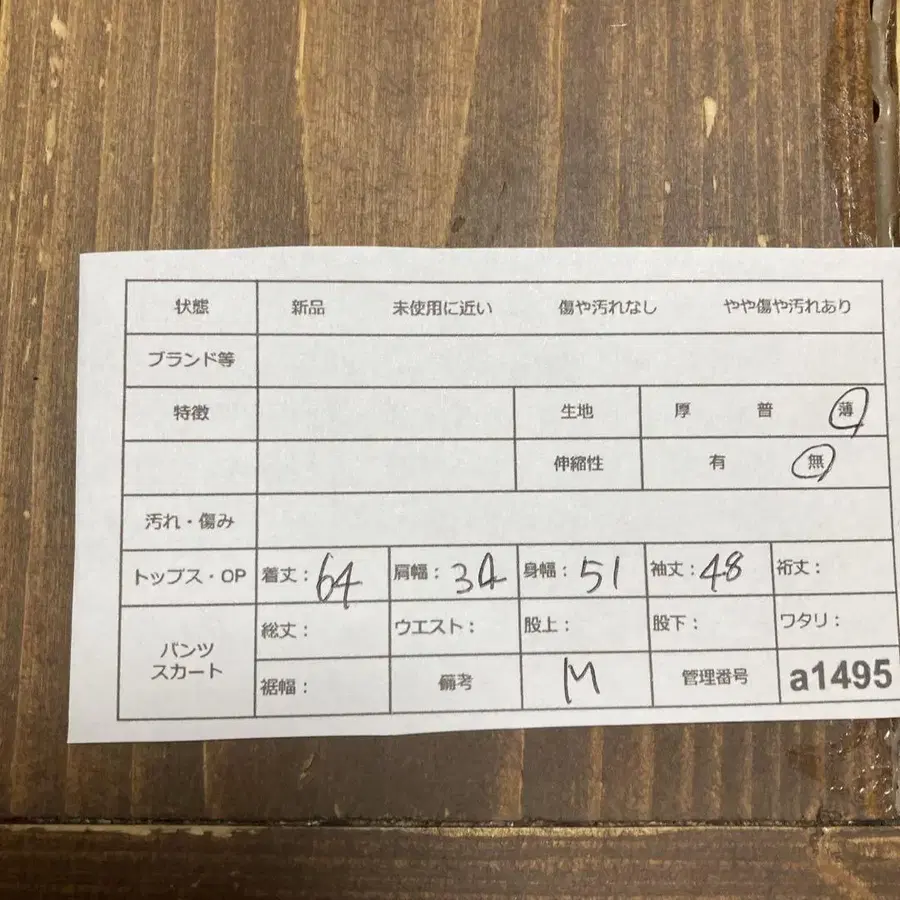 状態 新品 未使用に近い 傷や汚れなし やや傷や汚れあり
ブランド等
特徴 生地 厚 普 薄
伸縮性 有 無
汚れ・傷み
トップス・OP 着丈：64 肩幅：34 身幅：51 袖丈：48 裄丈：
パンツ スカート 総丈： ウエスト： 股上： 股下： ワタリ：
裾幅： 備考 M 管理番号 a1495